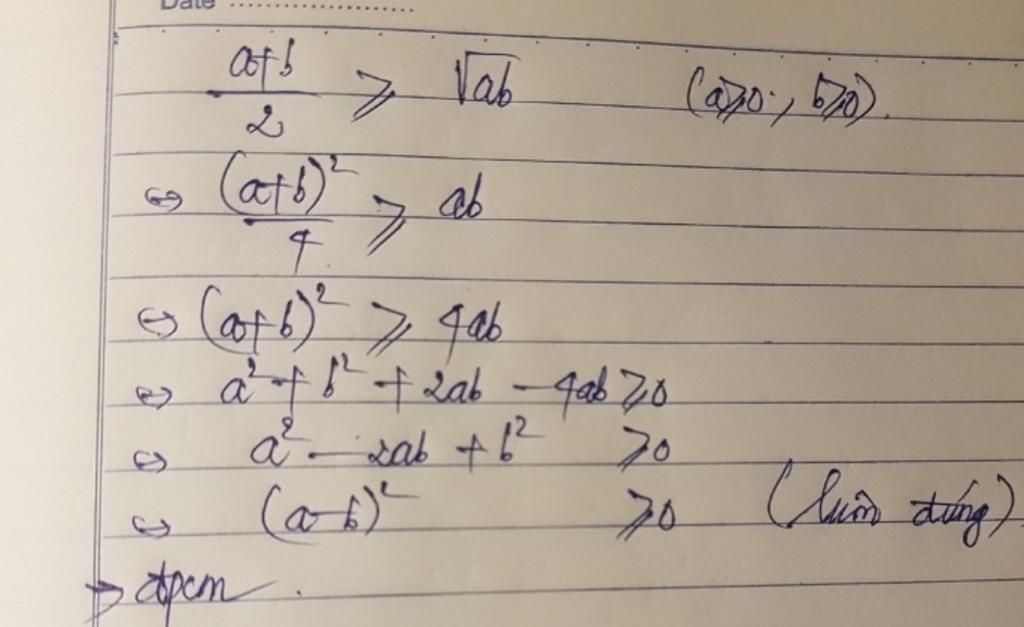 Date ....................
a+b/2 ⩾ √ab (a⩾0, b⩾0).
⇔ (a+b)²/4 ⩾ ab
⇔ (a+b)² ⩾ 4ab
⇔ a² + b² + 2ab - 4ab ⩾ 0
⇔ a² - 2ab + b² ⩾ 0
⇔ (a-b)² ⩾ 0 (luôn đúng)
→ đpcm.